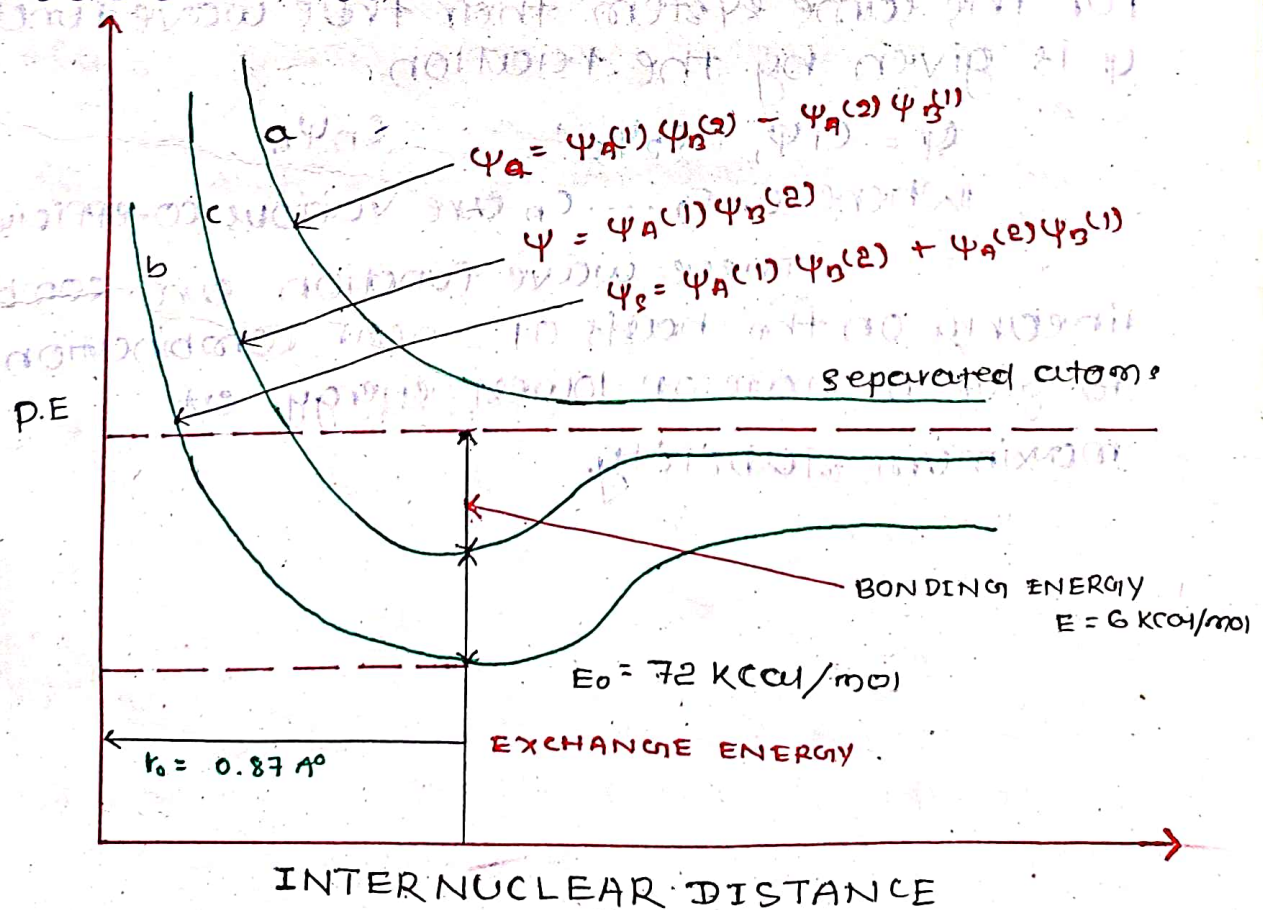 a
Ψa = ΨA(1) ΨB(2) – ΨA(2) ΨB(1)
c
Ψ = ΨA(1) ΨB(2)
b
Ψs = ΨA(1) ΨB(2) + ΨA(2) ΨB(1)
separated atoms
P.E
BONDING ENERGY
E = 6 Kcal/mol
E0 = 72 KCal/mol
EXCHANGE ENERGY .
r0 = 0.87 A°
INTERNUCLEAR DISTANCE